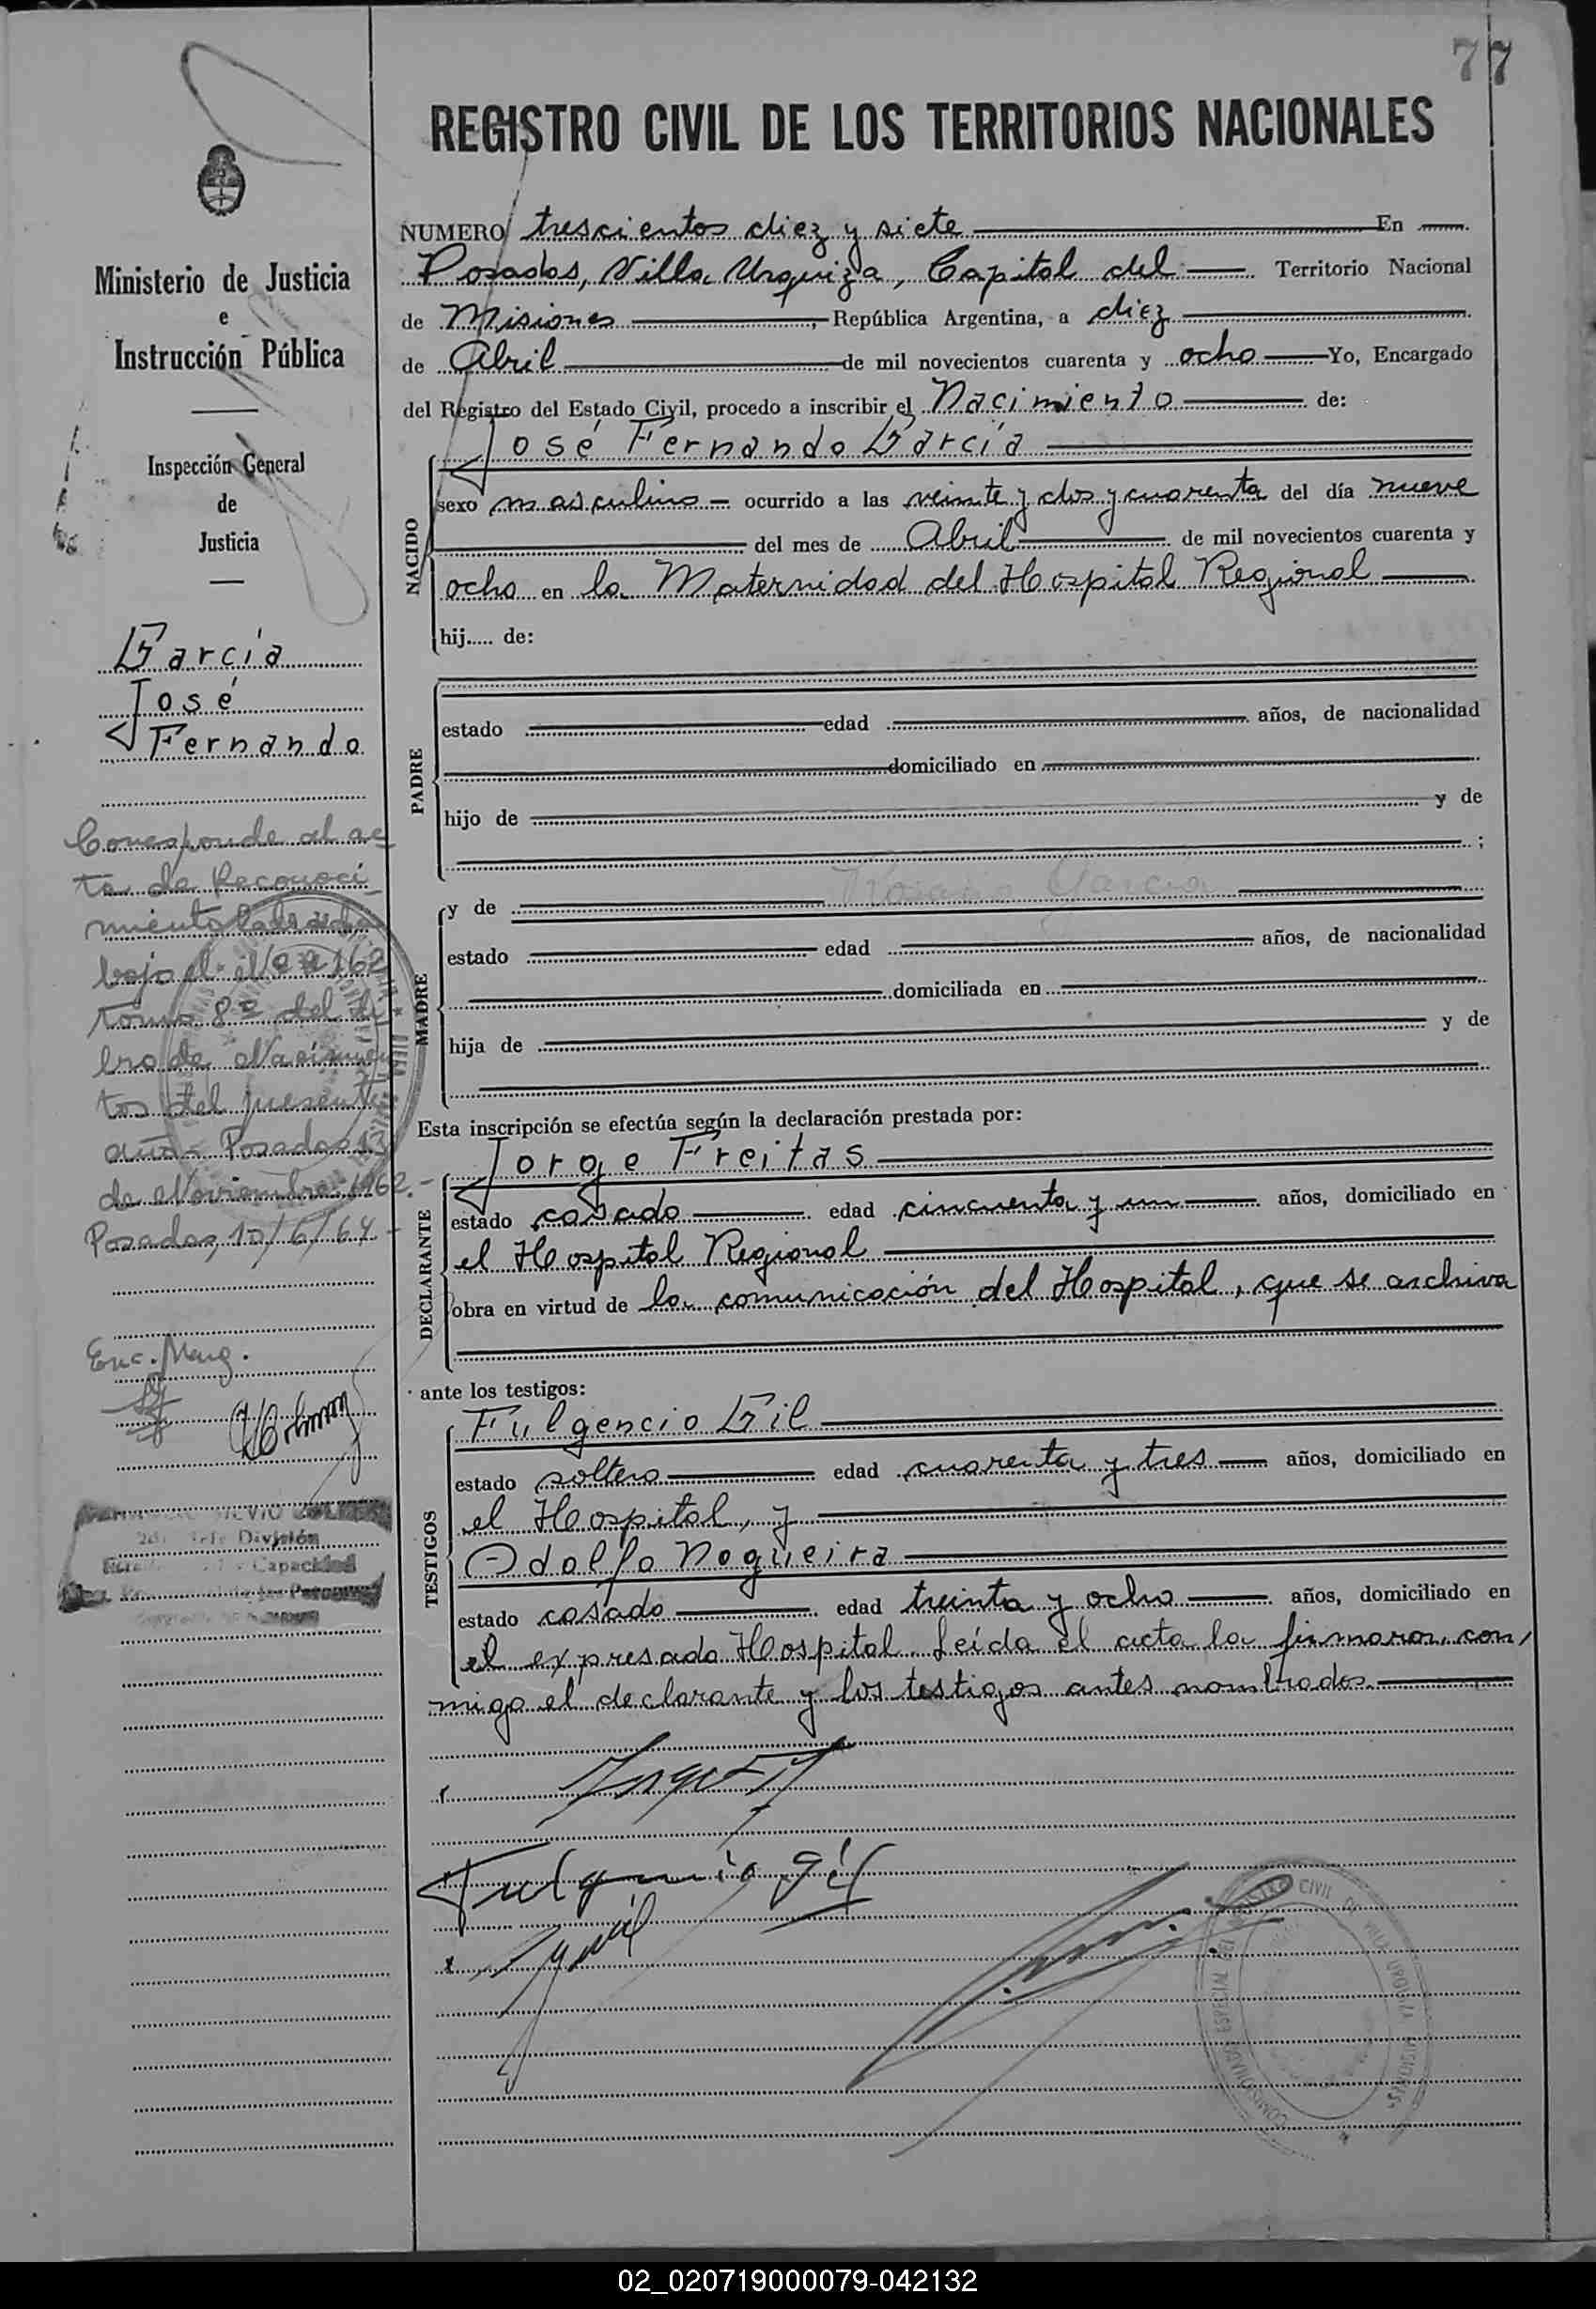 77
REGISTRO CIVIL DE LOS TERRITORIOS NACIONALES
Ministerio de Justicia
e
Instrucción Pública
Inspección General
de
Justicia
García
José
Fernando
Corresponde al ac
ta de Reconoci
miento labrado
bajo el Nº 162
tomo 8º del li
bro de Nacimien
tos del presente
año - Posadas 13
de Noviembre 1962.-
Posadas, 10/6/64 -
Enc. Marg.
División
Capacidad
NUMERO trescientos diez y siete En
Posadas, Villa Urquiza, Capital del Territorio Nacional
de Misiones, República Argentina, a diez
de Abril de mil novecientos cuarenta y ocho Yo, Encargado
del Registro del Estado Civil, procedo a inscribir el Nacimiento de:
NACIDO
José Fernando García
sexo masculino ocurrido a las veinte y dos y cuarenta del día nueve
del mes de Abril de mil novecientos cuarenta y
ocho en la Maternidad del Hospital Regional
hij..... de:
PADRE
estado edad años, de nacionalidad
domiciliado en
hijo de y de
;
MADRE
y de Rosario García
estado edad años, de nacionalidad
domiciliada en
hija de y de
Esta inscripción se efectúa según la declaración prestada por:
DECLARANTE
Jorge Freitas
estado casado edad cincuenta y un años, domiciliado en
el Hospital Regional
obra en virtud de la comunicación del Hospital, que se archiva
ante los testigos:
TESTIGOS
Fulgencio Gil
estado soltero edad cuarenta y tres años, domiciliado en
el Hospital, y
Adolfo Nogueira
estado casado edad treinta y ocho años, domiciliado en
el expresado Hospital. Leída el acta la firmaron con,
migo el declarante y los testigos antes nombrados.
Fulgencio Gil
REGISTRO CIVIL DE VILLA URQUIZA MISIONES
02_020719000079-042132